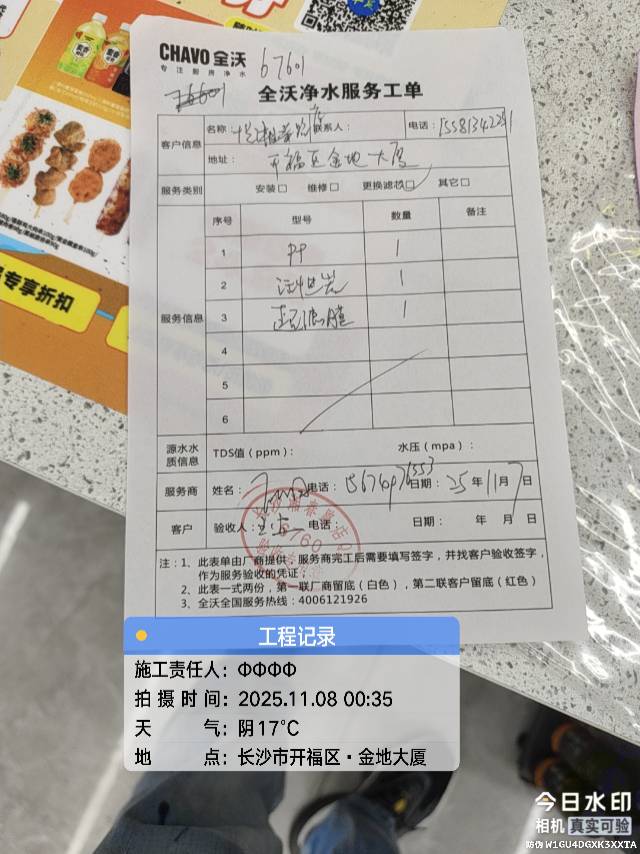 CHAVO 全沃
专注厨房净水
67601
全沃净水服务工单
客户信息
名称：
联系人：
电话：
地址：开福区金地大厦
服务类别
安装□ 维修□ 更换滤芯□ 其它□
服务信息
序号 型号 数量 备注
1 PP 1
2 活性炭 1
3 超滤膜 1
4
5
6
源水水质信息
TDS值（ppm）：
水压（mpa）：
服务商
姓名：
电话：
日期：25年11月7日
客户
验收人：
电话：
日期： 年 月 日
注：1、此表单由厂商提供，服务商完工后需要填写签字，并找客户验收签字，
作为服务验收的凭证；
2、此表一式两份，第一联厂商留底（白色），第二联客户留底（红色）
3、全沃全国服务热线：4006121926
品专享折扣
工程记录
施工责任人：ФФФФ
拍摄时间：2025.11.08 00:35
天 气：阴17℃
地 点：长沙市开福区·金地大厦
今日水印
相机 真实可验
防伪 W1GU4DGXK3XXTA